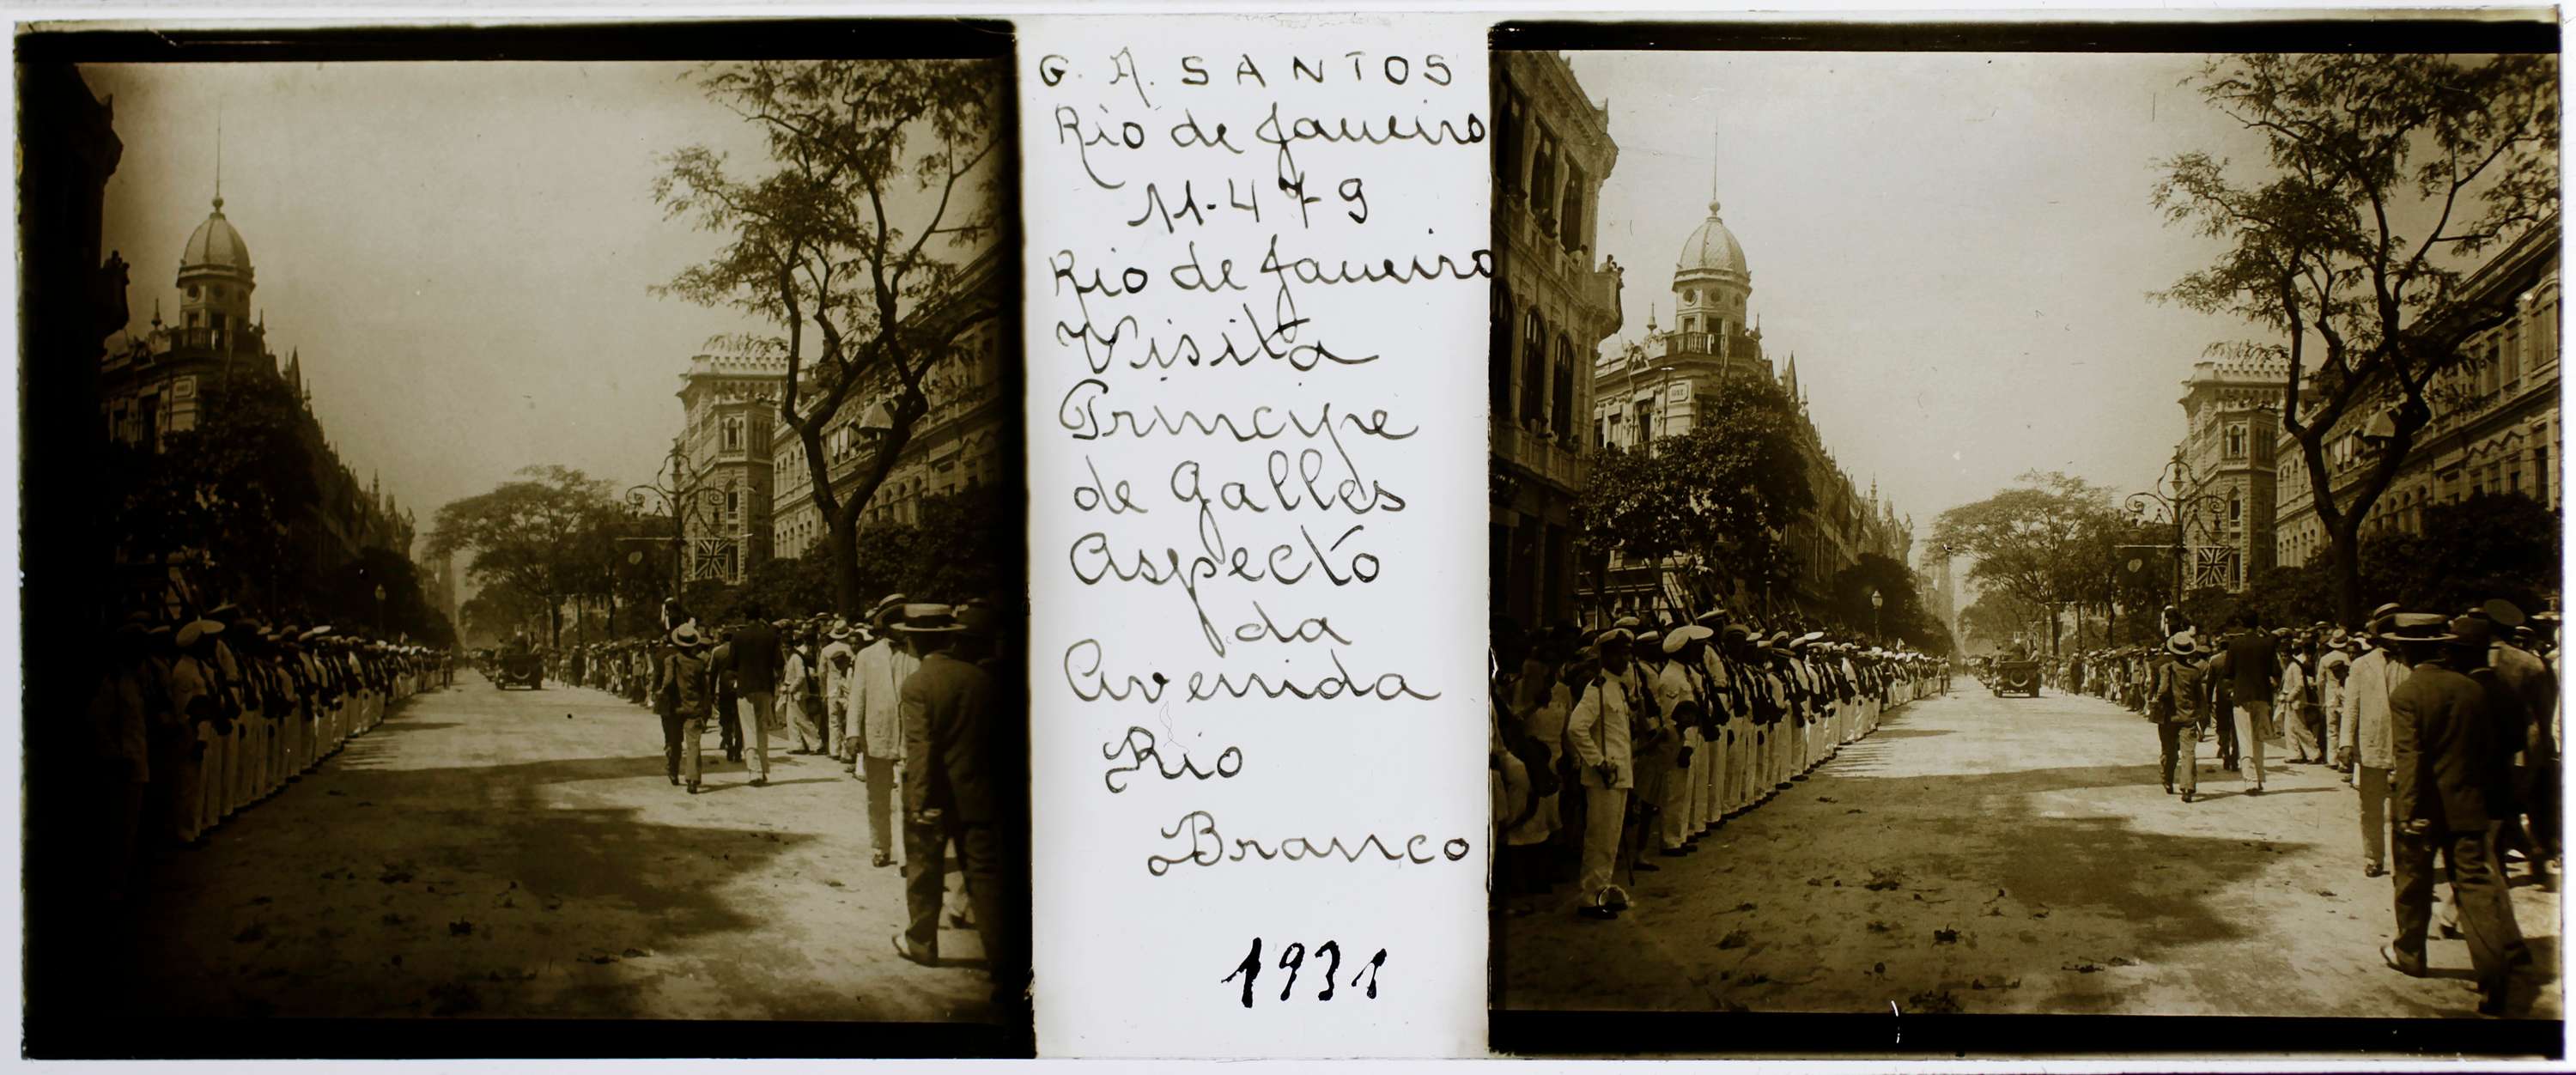 G. A. SANTOS
Rio de Janeiro
11-479
Rio de Janeiro
Visita
Principe
de Galles
Aspecto
da
Avenida
Rio
Branco
1931